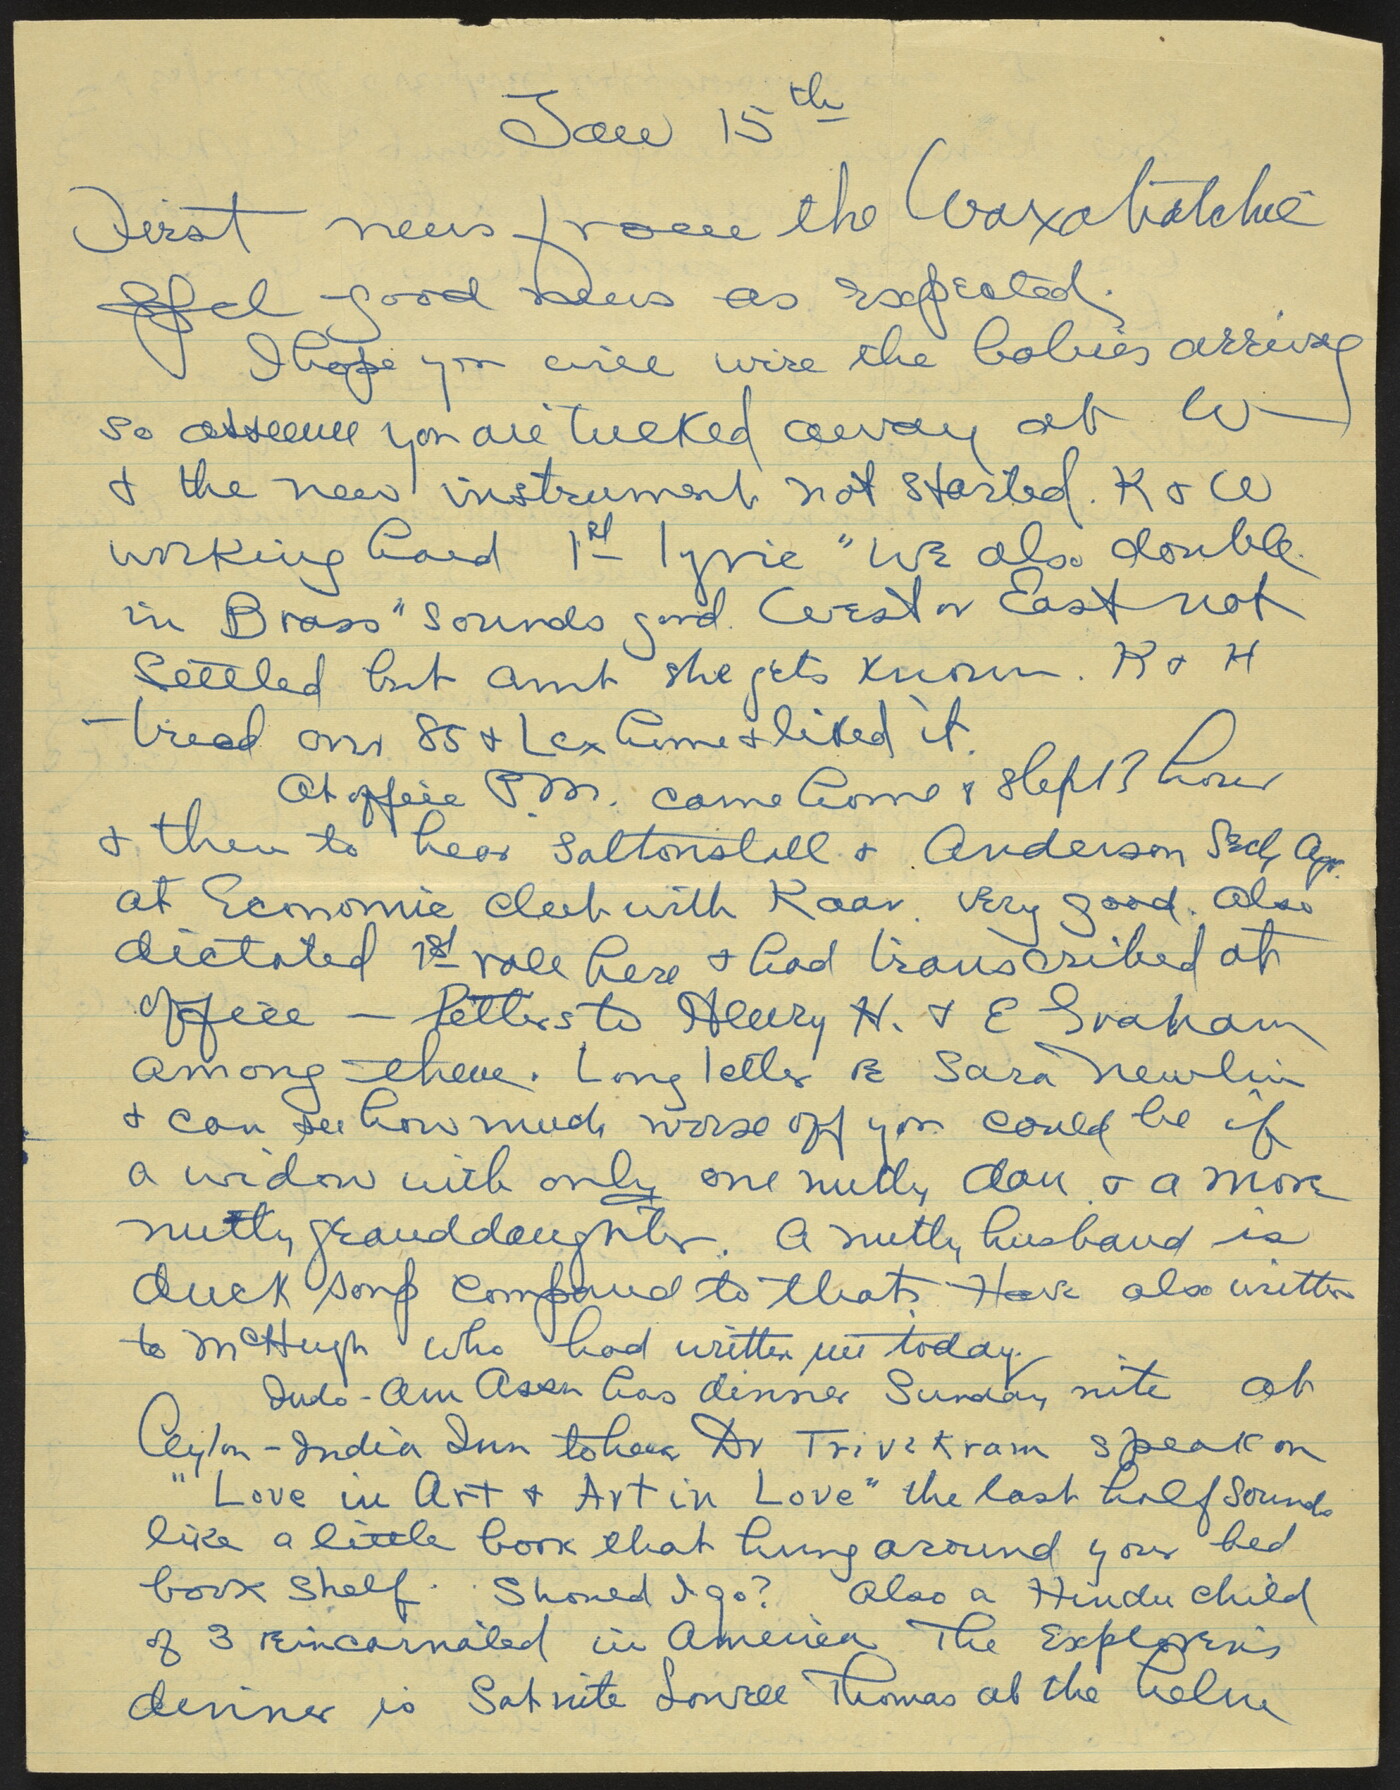 Jan 15th
First news from the Waxahatchie
good news as expected.
I hope you will wire the babies arrival
so assume you are tucked away at W—
& the new instrument not started. K & W
working hard 1st lyric "WE also double
in Brass" sounds good. West or East not
settled but amt she gets known. K & H
tread over 85 & Lex home & liked it.
At office P.M. came home & slept 3 hours
& then to hear Saltonstall & Anderson Secty Agr.
at Economic club with Kaar. Very good. Also
dictated 1st role here & had transcribed at
office — letters to Henry H. & E Graham
among them. Long letter RE Sara Newlin
& can see how much worse off you could be if
a widow with only one nutty dau & a more
nutty granddaughter. A nutty husband is
duck soup compared to that. Have also written
to McHugh who had written me today.
Indo-Am Assn has dinner Sunday nite at
Ceylon-India Inn to hear Dr Trivikram speak on
"Love in Art & Art in Love" the last half sounds
like a little book that hung around your bed
book shelf. Should I go? Also a Hindu child
of 3 reincarnated in America The Explorers
dinner is Sat nite Lowell Thomas at the helm